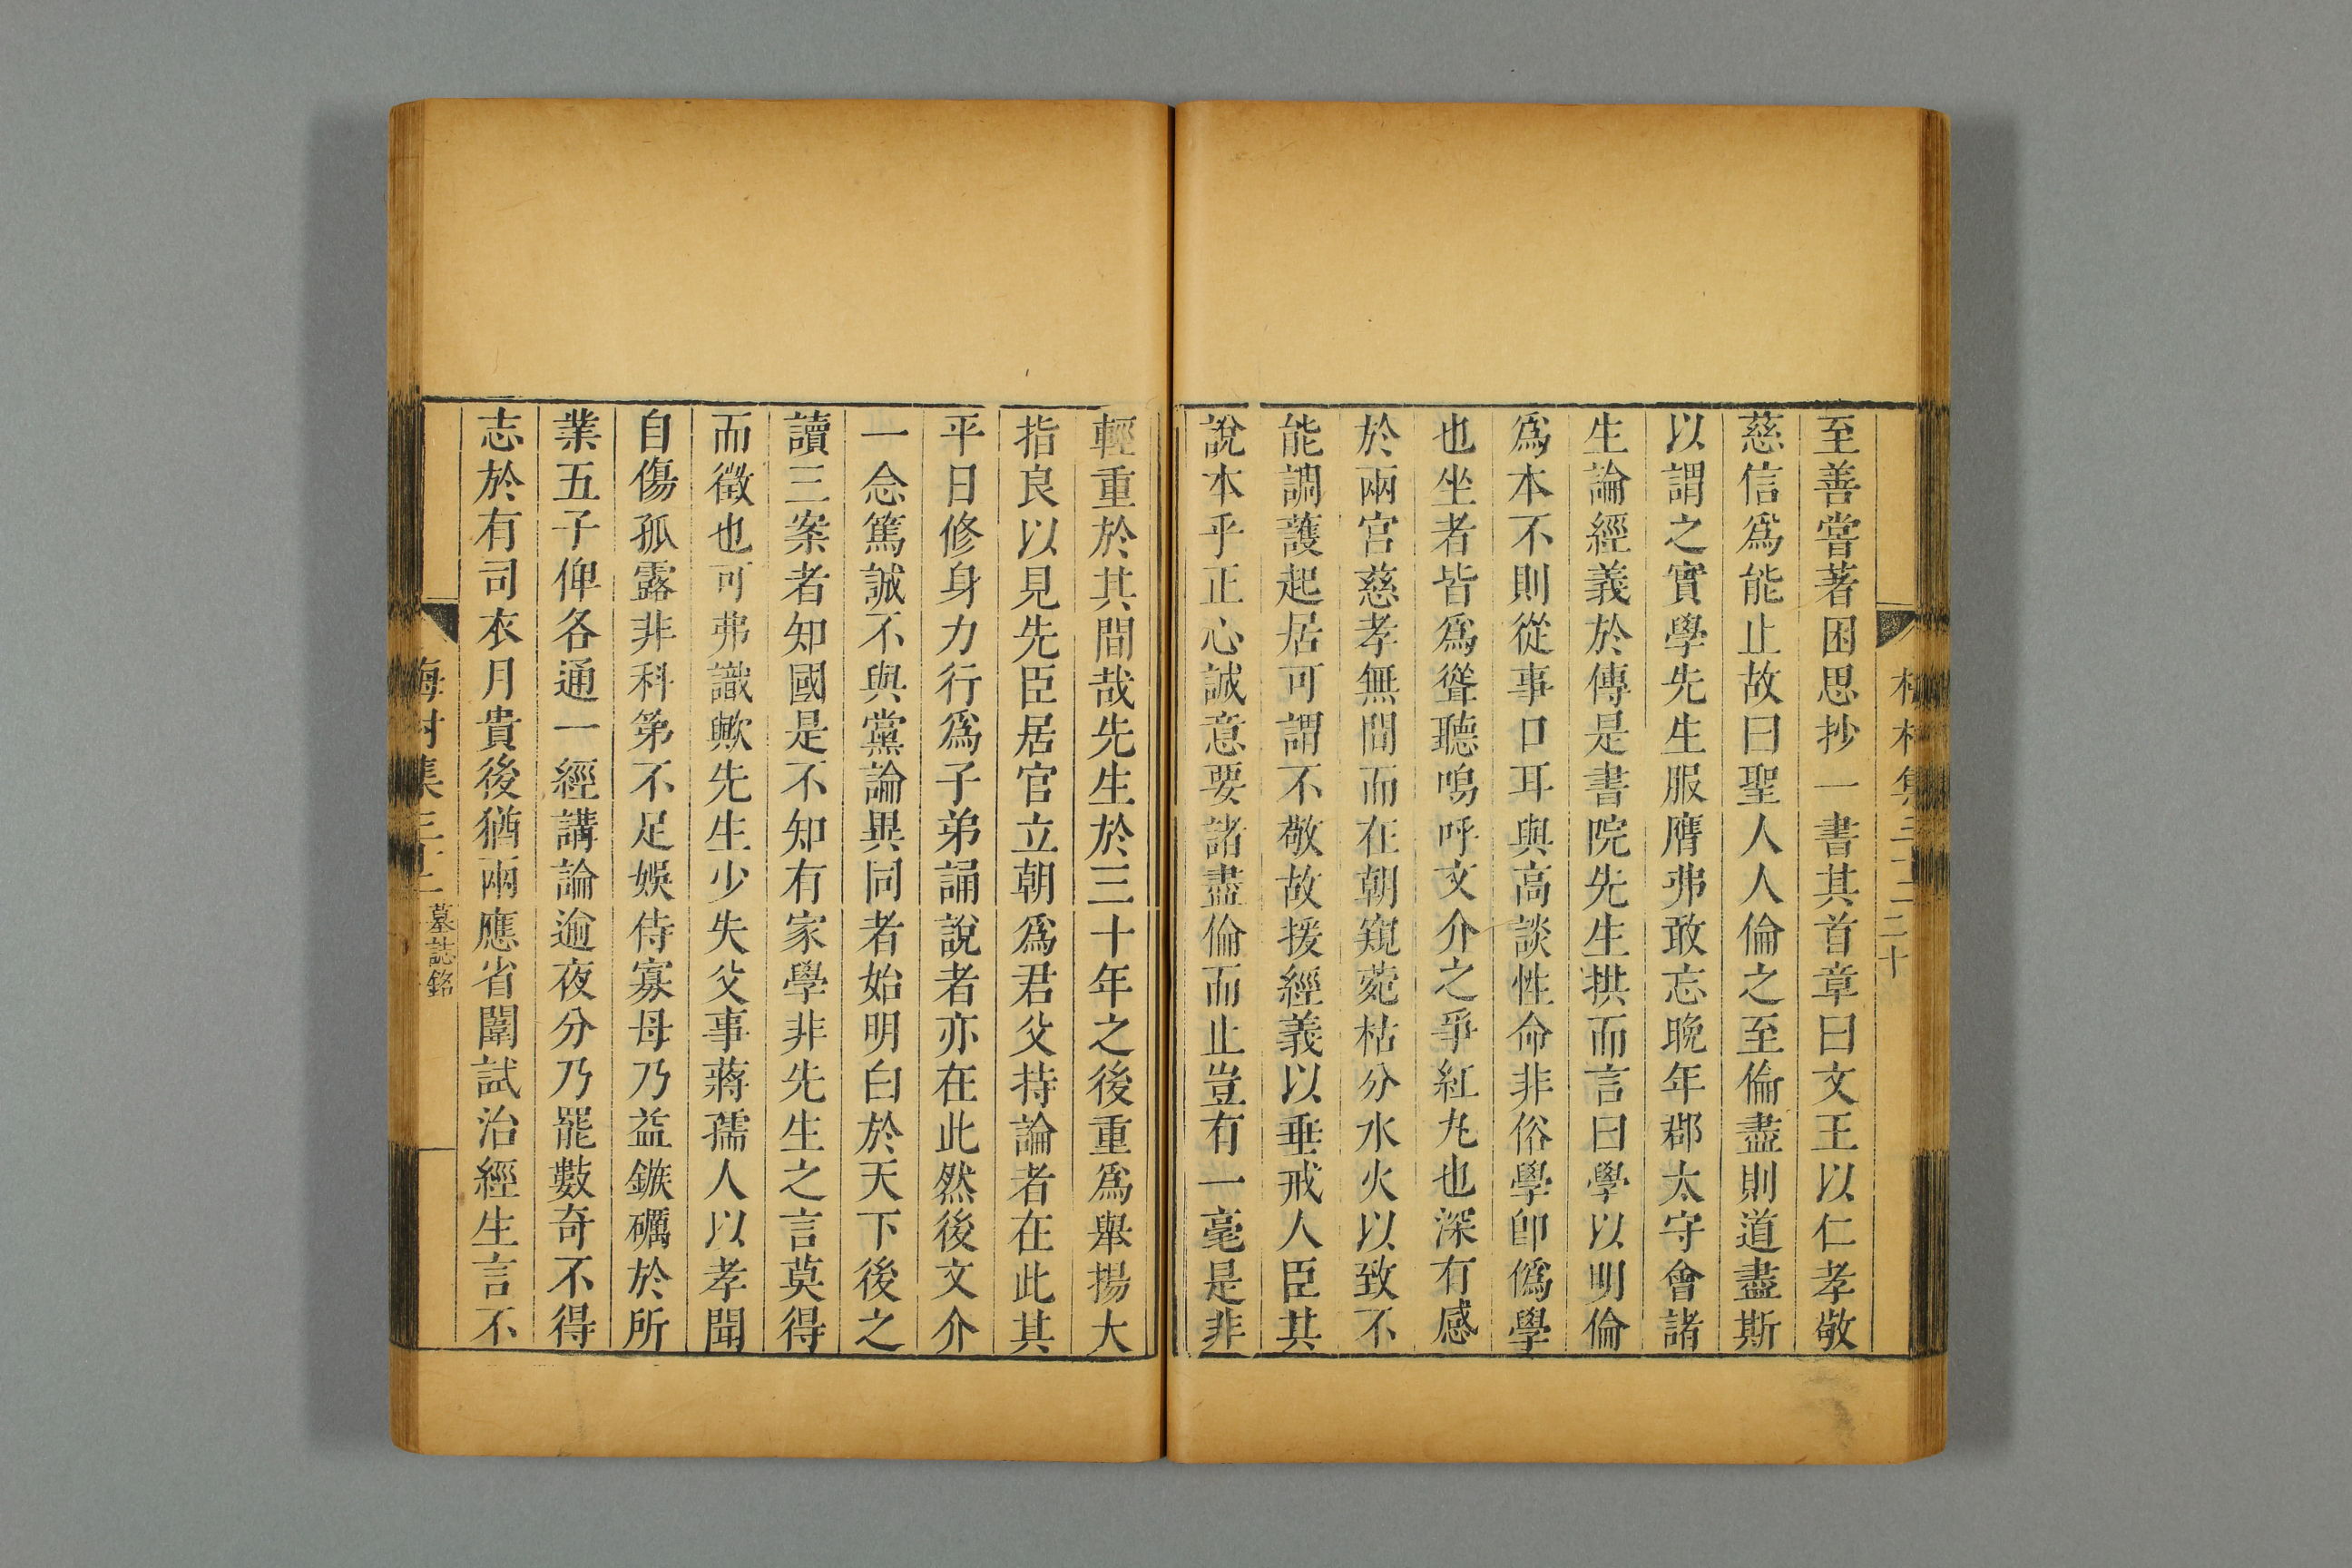 至善嘗著困思抄一書其首章曰文王以仁孝敬
慈信爲能止故曰聖人人倫之至倫盡則道盡斯
以謂之實學先生服膺弗敢忘晚年郡太守會諸
生論經義於傳是書院先生拱而言曰學以明倫
爲本不則從事口耳與高談性命非俗學卽僞學
也坐者皆爲聳聽嗚呼文介之爭紅丸也深有感
於兩宮慈孝無間而在朝窺菀枯分水火以致不
能調護起居可謂不敬故援經義以垂戒人臣其
說本乎正心誠意要諸盡倫而止豈有一毫是非
輕重於其間哉先生於三十年之後重爲舉揚大
指良以見先臣居官立朝爲君父持論者在此其
平日修身力行爲子弟誦說者亦在此然後文介
一念篤誠不與黨論異同者始明白於天下後之
讀三案者知國是不知有家學非先生之言莫得
而徵也可弗識歟先生少失父事蔣孺人以孝聞
自傷孤露非科第不足娛侍寡母乃益鏃礪於所
業五子俾各通一經講論逾夜分乃罷數奇不得
志於有司衣月貴後猶兩應省闈試治經生言不
墓誌銘